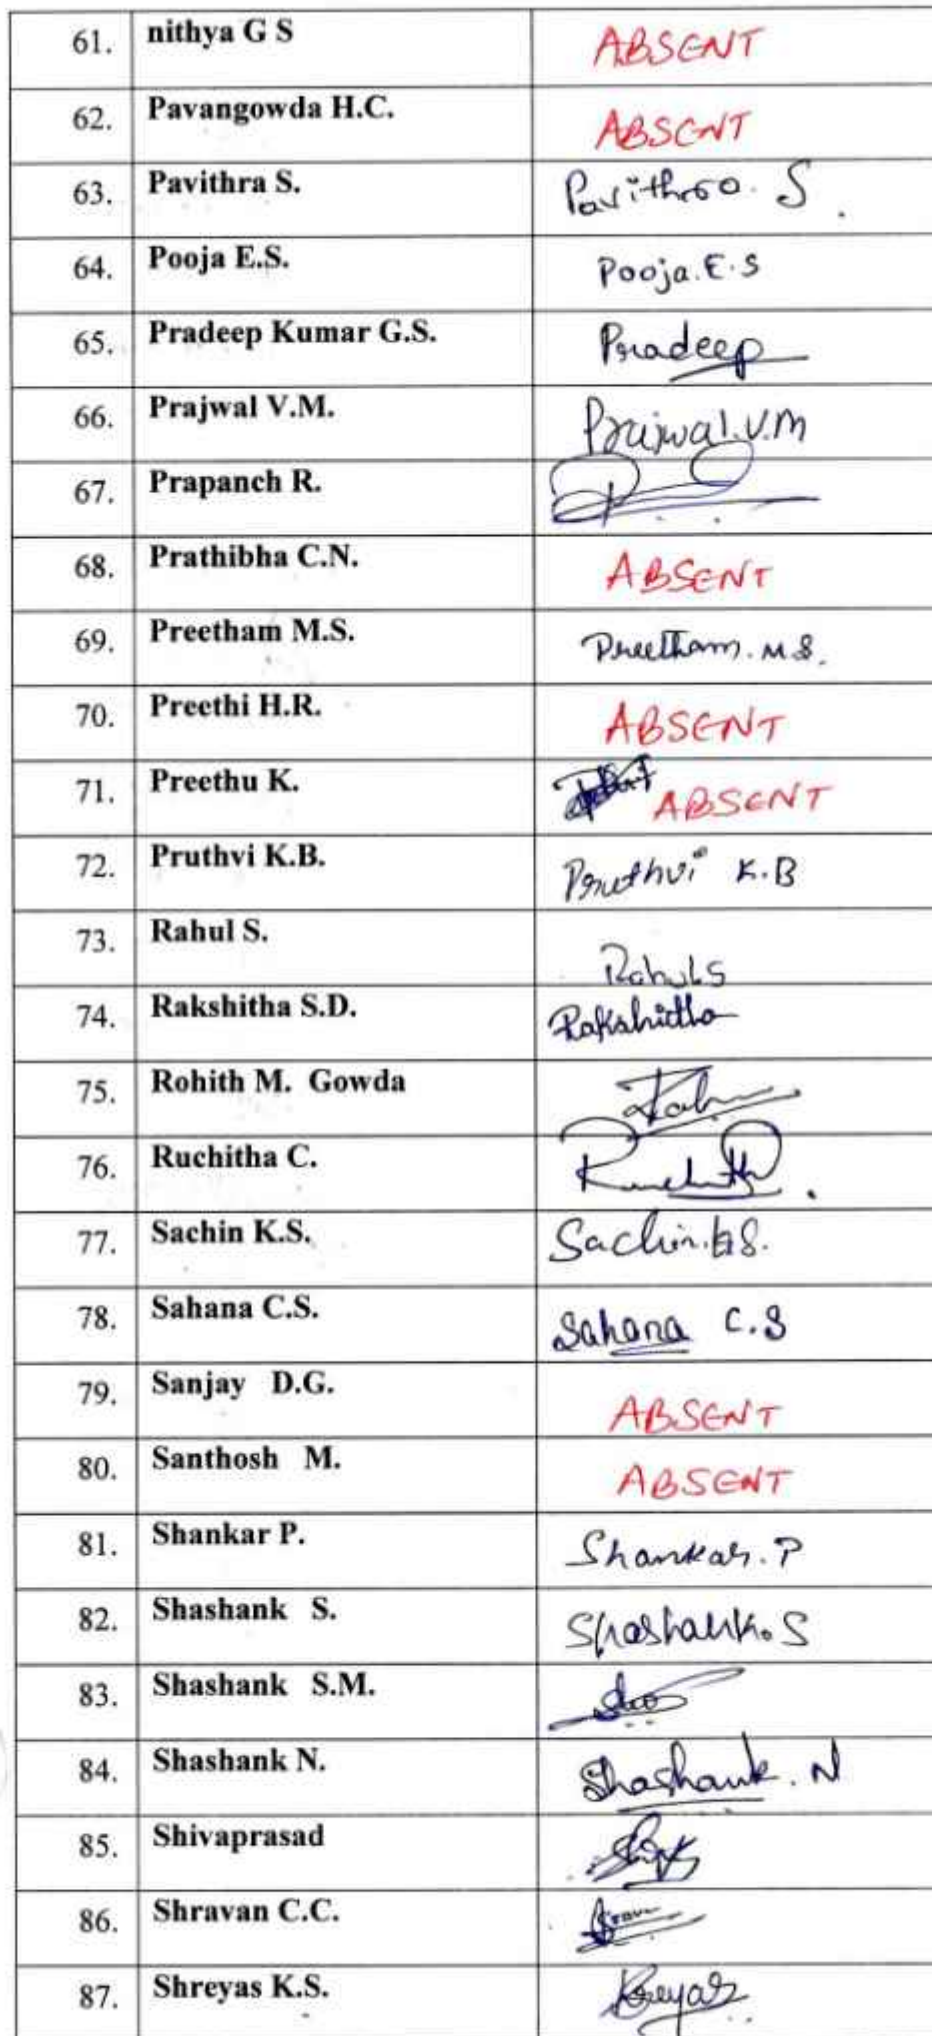 61. nithya G S ABSENT
62. Pavangowda H.C. ABSENT
63. Pavithra S. Pavithra. S
64. Pooja E.S. Pooja.E.S
65. Pradeep Kumar G.S. Pradeep
66. Prajwal V.M. Prajwal.V.M
67. Prapanch R.
68. Prathibha C.N. ABSENT
69. Preetham M.S. Preetham. M.S.
70. Preethi H.R. ABSENT
71. Preethu K. ABSENT
72. Pruthvi K.B. Pruthvi K.B
73. Rahul S. Rahul S
74. Rakshitha S.D. Rakshitha
75. Rohith M. Gowda
76. Ruchitha C.
77. Sachin K.S. Sachin.K.S.
78. Sahana C.S. Sahana C.S
79. Sanjay D.G. ABSENT
80. Santhosh M. ABSENT
81. Shankar P. Shankar. P
82. Shashank S. Shashank. S
83. Shashank S.M.
84. Shashank N. Shashank. N
85. Shivaprasad
86. Shravan C.C.
87. Shreyas K.S. Shreyas